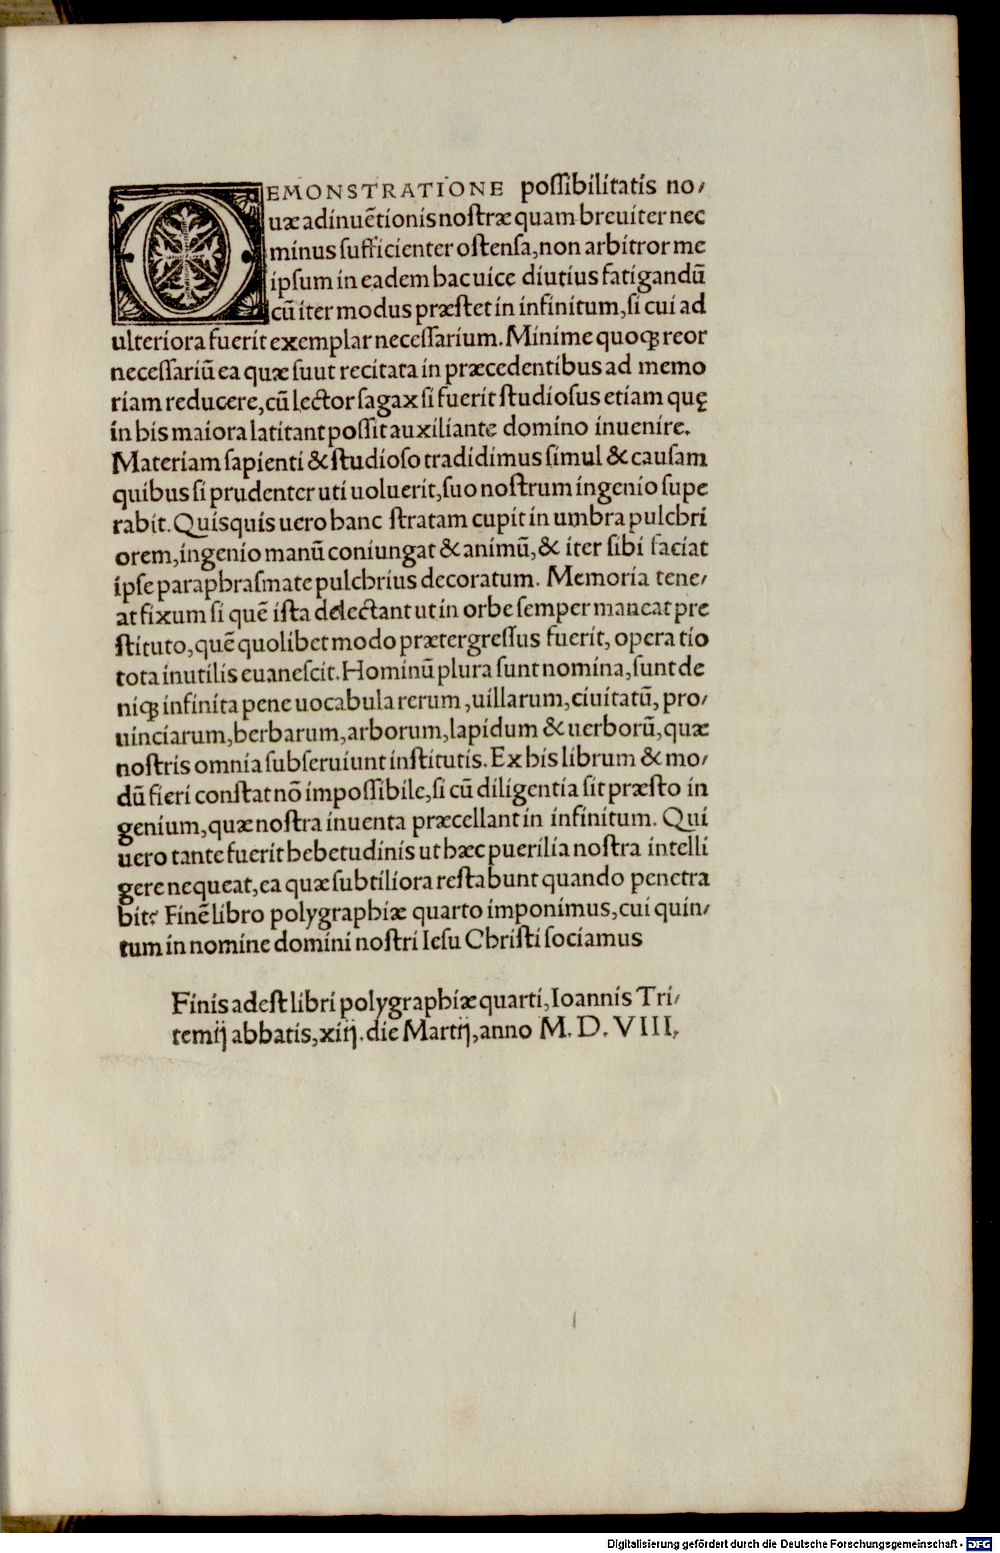 DEMONSTRATIONE poſſibilitatis no/
uæ adinuẽtionis noſtræ quam breuiter nec
minus ſufficienter oſtenſa, non arbitror me
ipſum in eadem hac uice diutius fatigandũ
cũ iter modus præſtet in infinitum, ſi cui ad
ulteriora fuerit exemplar neceſſarium. Minime quoqꝫ reor
neceſſariũ ea quæ suut recitata in præcedentibus ad memo
riam reducere, cũ lector ſagax ſi fuerit ſtudioſus etiam quę
in his maiora latitant poſſit auxiliante domino inuenire.
Materiam ſapienti & ſtudioſo tradidimus ſimul & cauſam
quibus ſi prudenter uti uoluerit, ſuo noſtrum ingenio ſupe
rabit. Quisquis uero hanc ſtratam cupit in umbra pulchri
orem, ingenio manũ coniungat & animũ, & iter ſibi faciat
ipſe paraphraſmate pulchrius decoratum. Memoria tene/
at fixum ſi quẽ iſta delectant ut in orbe ſemper maneat pre
ſtituto, quẽ quolibet modo prætergreſſus fuerit, opera tio
tota inutilis euaneſcit. Hominũ plura ſunt nomina, ſunt de
niqꝫ infinita pene uocabula rerum, uillarum, ciuitatũ, pro/
uinciarum, herbarum, arborum, lapidum & uerborũ, quæ
noſtris omnia ſubſeruiunt inſtitutis. Ex his librum & mo/
dũ fieri conſtat nõ impoſſibile, ſi cũ diligentia ſit præſto in
genium, quæ noſtra inuenta præcellant in infinitum. Qui
uero tante fuerit hebetudinis ut hæc puerilia noſtra intelli
gere nequeat, ea quæ ſubtiliora reſtabunt quando penetra
bit? Finẽ libro polygraphiæ quarto imponimus, cui quin/
tum in nomine domini noſtri Ieſu Chriſti ſociamus
Finis adeſt libri polygraphiæ quarti, Ioannis Tri/
temij abbatis, xiij. die Martij, anno M. D. VIII,
Digitalisierung gefördert durch die Deutsche Forschungsgemeinschaft - DFG